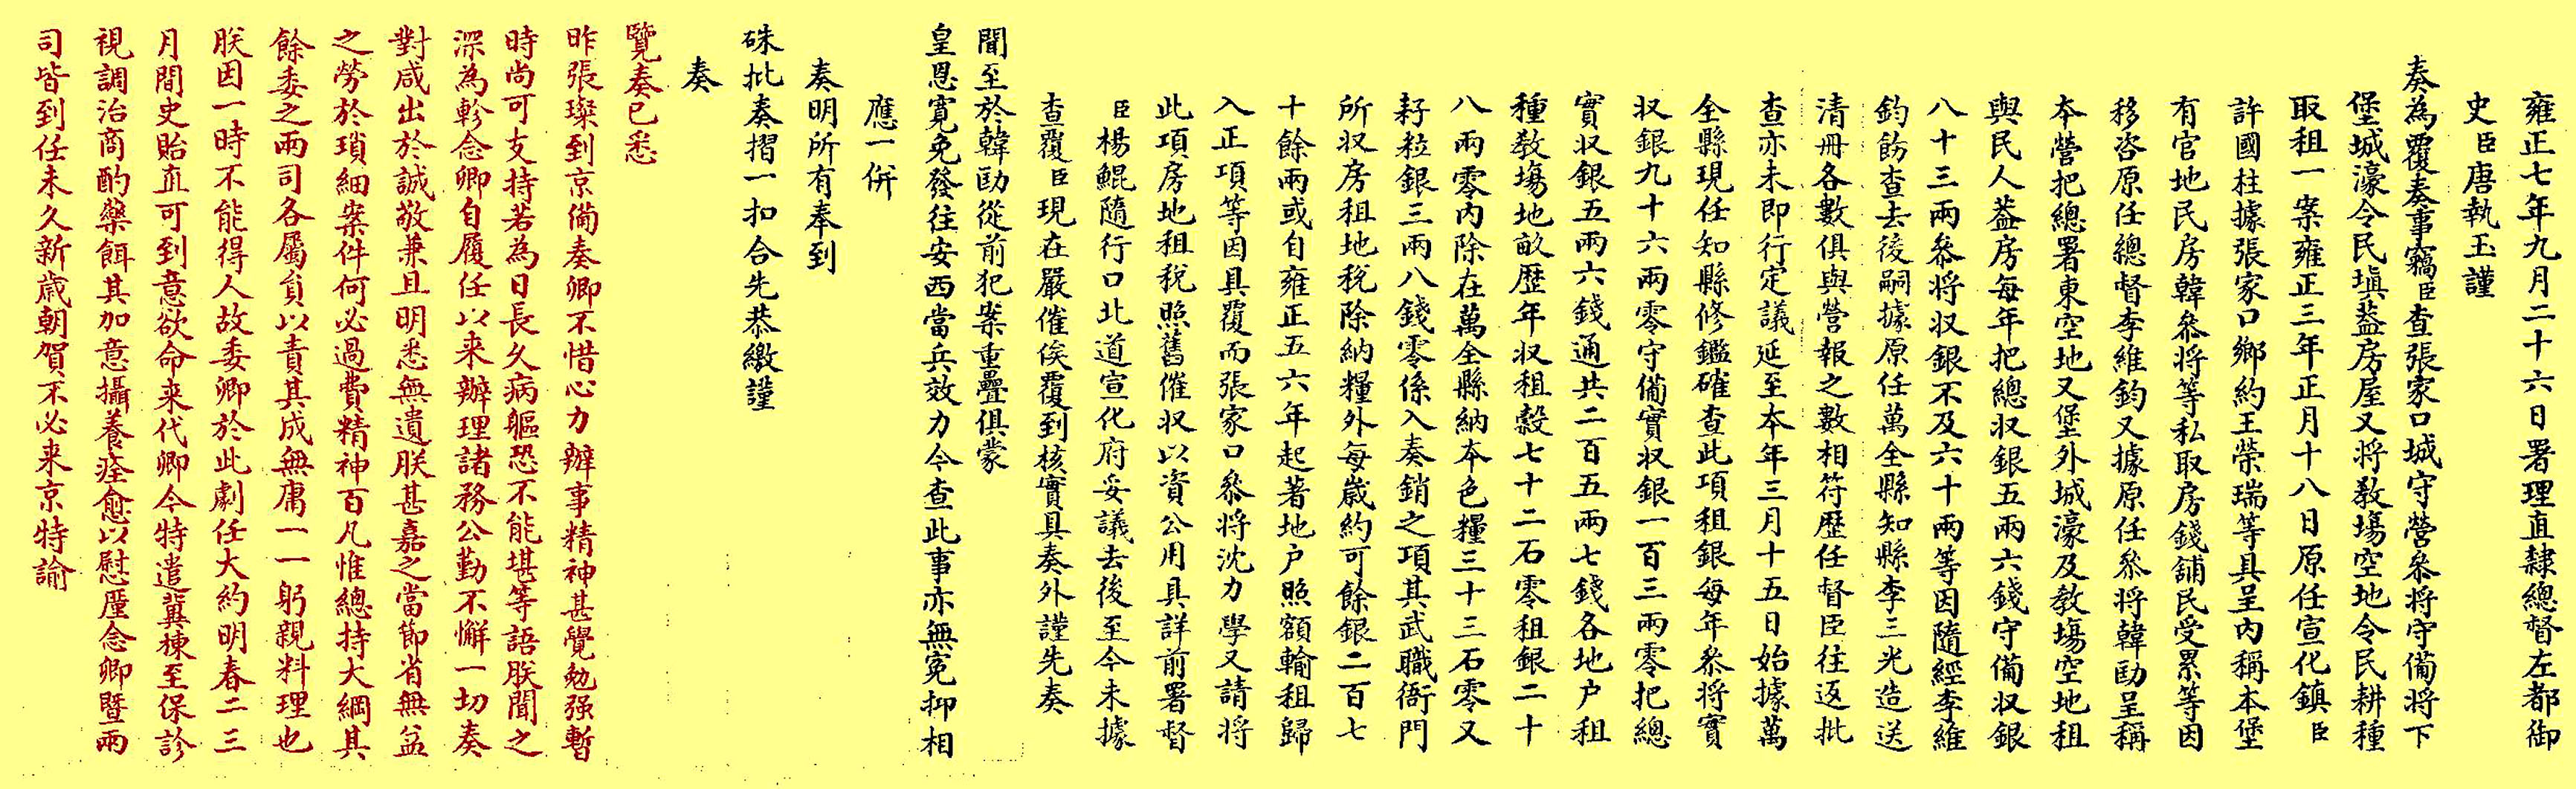 雍正七年九月二十六日署理直隸總督左都御
史臣唐執玉謹
奏為覆奏事竊臣查張家口城守營叅將守備將下
堡城濠令民塡葢房屋又將教塲空地令民耕種
取租一案雍正三年正月十八日原任宣化鎮臣
許國柱據張家口鄉約王榮瑞等具呈內稱本堡
有官地民房韓叅將等私取房錢舖民受累等因
移咨原任總督李維鈞又據原任叅將韓勛呈稱
本營把總署東空地又堡外城濠及教塲空地租
與民人葢房每年把總収銀五兩六錢守備収銀
八十三兩叅將収銀不及六十兩等因隨經李維
鈞飭查去後嗣據原任萬全縣知縣李三光造送
清冊各數俱與營報之數相符歷任督臣往返批
查亦未即行定議延至本年三月十五日始據萬
全縣現任知縣修鑑確查此項租銀每年叅將實
収銀九十六兩零守備實収銀一百三兩零把總
實収銀五兩六錢通共二百五兩七錢各地户租
種教塲地畝歷年収租穀七十二石零租銀二十
八兩零內除在萬全縣納本色糧三十三石零又
耔粒銀三兩八錢零係入奏銷之項其武職衙門
所収房租地稅除納糧外每歲約可餘銀二百七
十餘兩或自雍正五六年起著地户照額輸租歸
入正項等因具覆而張家口叅將沈力學又請將
此項房地租稅照舊催収以資公用具詳前署督
臣楊鯤隨行口北道宣化府妥議去後至今未據
查覆臣現在嚴催俟覆到核實具奏外謹先奏
聞至於韓勛從前犯案重疊俱蒙
皇恩寬免發往安西當兵效力今查此事亦無寃抑相
應一併
奏明所有奉到
硃批奏摺一扣合先恭繳謹
奏
覽奏已悉
昨張璨到京備奏卿不惜心力辦事精神甚覺勉强暫
時尚可支持若為日長久病軀恐不能堪等語朕聞之
深為軫念卿自履任以来辦理諸務公勤不懈一切奏
對咸出於誠敬兼且明悉無遺朕甚嘉之當節省無益
之勞於瑣細案件何必過費精神百凡惟總持大綱其
餘委之兩司各屬負以責其成無庸一一躬親料理也
朕因一時不能得人故委卿於此劇任大約明春二三
月間史貽直可到意欲命来代卿今特遣冀棟至保診
視調治商酌藥餌其加意攝養痊愈以慰厪念卿暨兩
司皆到任未久新歲朝賀不必来京特諭